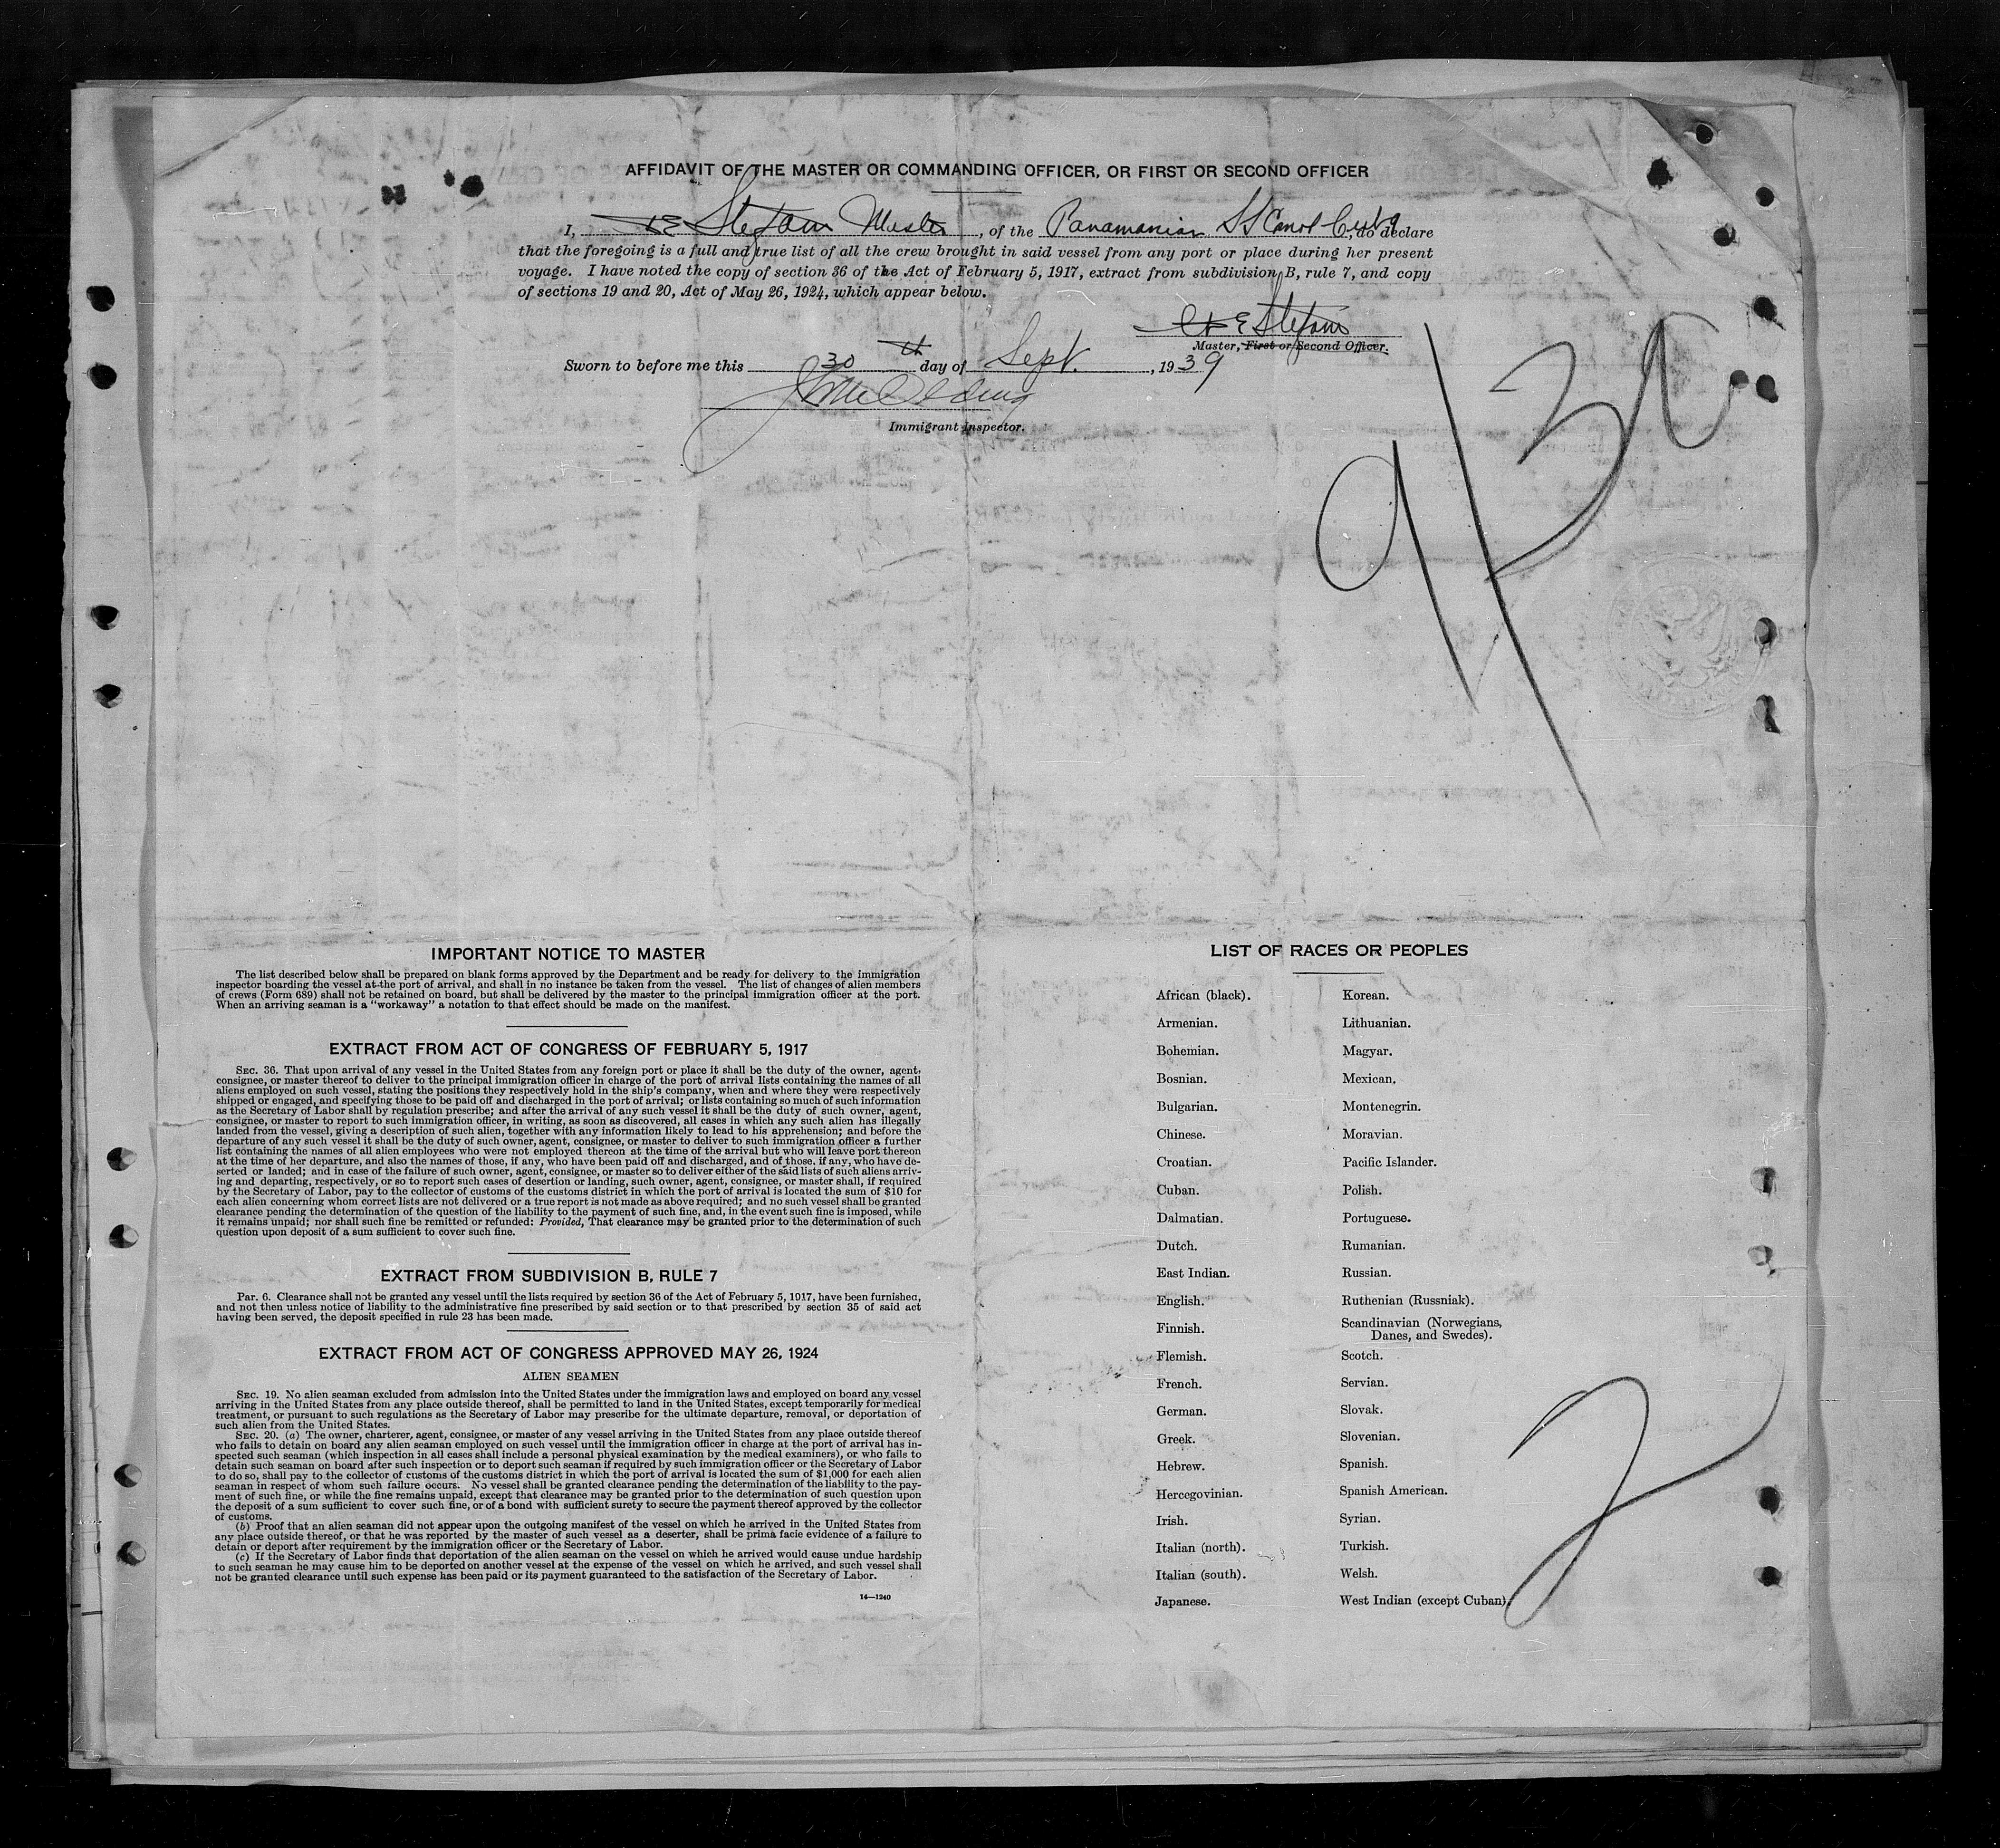 AFFIDAVIT OF THE MASTER OR COMMANDING OFFICER, OR FIRST OR SECOND OFFICER
I, Stefani Master, of the Panamanian SS, do declare
that the foregoing is a full and true list of all the crew brought in said vessel from any port or place during her present
voyage. I have noted the copy of section 36 of the Act of February 5, 1917, extract from subdivision B, rule 7, and copy
of sections 19 and 20, Act of May 26, 1924, which appear below.
Stefani
Master, First or Second Officer.
Sworn to before me this 30th day of Sept., 1939
Immigrant Inspector.
9/30
IMPORTANT NOTICE TO MASTER
The list described below shall be prepared on blank forms approved by the Department and be ready for delivery to the immigration
inspector boarding the vessel at the port of arrival, and shall in no instance be taken from the vessel. The list of changes of alien members
of crews (Form 689) shall not be retained on board, but shall be delivered by the master to the principal immigration officer at the port.
When an arriving seaman is a "workaway" a notation to that effect should be made on the manifest.
EXTRACT FROM ACT OF CONGRESS OF FEBRUARY 5, 1917
SEC. 36. That upon arrival of any vessel in the United States from any foreign port or place it shall be the duty of the owner, agent,
consignee, or master thereof to deliver to the principal immigration officer in charge of the port of arrival lists containing the names of all
aliens employed on such vessel, stating the positions they respectively hold in the ship's company, when and where they were respectively
shipped or engaged, and specifying those to be paid off and discharged in the port of arrival; or lists containing so much of such information
as the Secretary of Labor shall by regulation prescribe; and after the arrival of any such vessel it shall be the duty of such owner, agent,
consignee, or master to report to such immigration officer, in writing, as soon as discovered, all cases in which any such alien has illegally
landed from the vessel, giving a description of such alien, together with any information likely to lead to his apprehension; and before the
departure of any such vessel it shall be the duty of such owner, agent, consignee, or master to deliver to such immigration officer a further
list containing the names of all alien employees who were not employed thereon at the time of the arrival but who will leave port thereon
at the time of her departure, and also the names of those, if any, who have been paid off and discharged, and of those, if any, who have de-
serted or landed; and in case of the failure of such owner, agent, consignee, or master so to deliver either of the said lists of such aliens arriv-
ing and departing, respectively, or so to report such cases of desertion or landing, such owner, agent, consignee, or master shall, if required
by the Secretary of Labor, pay to the collector of customs of the customs district in which the port of arrival is located the sum of $10 for
each alien concerning whom correct lists are not delivered or a true report is not made as above required; and no such vessel shall be granted
clearance pending the determination of the question of the liability to the payment of such fine, and, in the event such fine is imposed, while
it remains unpaid; nor shall such fine be remitted or refunded: Provided, That clearance may be granted prior to the determination of such
question upon deposit of a sum sufficient to cover such fine.
EXTRACT FROM SUBDIVISION B, RULE 7
PAR. 6. Clearance shall not be granted any vessel until the lists required by section 36 of the Act of February 5, 1917, have been furnished,
and not then unless notice of liability to the administrative fine prescribed by said section or to that prescribed by section 35 of said act
having been served, the deposit specified in rule 23 has been made.
EXTRACT FROM ACT OF CONGRESS APPROVED MAY 26, 1924
ALIEN SEAMEN
SEC. 19. No alien seaman excluded from admission into the United States under the immigration laws and employed on board any vessel
arriving in the United States from any place outside thereof, shall be permitted to land in the United States, except temporarily for medical
treatment, or pursuant to such regulations as the Secretary of Labor may prescribe for the ultimate departure, removal, or deportation of
such alien from the United States.
SEC. 20. (a) The owner, charterer, agent, consignee, or master of any vessel arriving in the United States from any place outside thereof
who fails to detain on board any alien seaman employed on such vessel until the immigration officer in charge at the port of arrival has in-
spected such seaman (which inspection in all cases shall include a personal physical examination by the medical examiners), or who fails to
detain such seaman on board after such inspection or to deport such seaman if required by such immigration officer or the Secretary of Labor
to do so, shall pay to the collector of customs of the customs district in which the port of arrival is located the sum of $1,000 for each alien
seaman in respect of whom such failure occurs. No vessel shall be granted clearance pending the determination of the liability to the pay-
ment of such fine, or while the fine remains unpaid, except that clearance may be granted prior to the determination of such question upon
the deposit of a sum sufficient to cover such fine, or of a bond with sufficient surety to secure the payment thereof approved by the collector
of customs.
(b) Proof that an alien seaman did not appear upon the outgoing manifest of the vessel on which he arrived in the United States from
any place outside thereof, or that he was reported by the master of such vessel as a deserter, shall be prima facie evidence of a failure to
detain or deport after requirement by the immigration officer or the Secretary of Labor.
(c) If the Secretary of Labor finds that deportation of the alien seaman on the vessel on which he arrived would cause undue hardship
to such seaman he may cause him to be deported on another vessel at the expense of the vessel on which he arrived, and such vessel shall
not be granted clearance until such expense has been paid or its payment guaranteed to the satisfaction of the Secretary of Labor.
14—1240
LIST OF RACES OR PEOPLES
African (black). Korean.
Armenian. Lithuanian.
Bohemian. Magyar.
Bosnian. Mexican.
Bulgarian. Montenegrin.
Chinese. Moravian.
Croatian. Pacific Islander.
Cuban. Polish.
Dalmatian. Portuguese.
Dutch. Rumanian.
East Indian. Russian.
English. Ruthenian (Russniak).
Finnish. Scandinavian (Norwegians,
Danes, and Swedes).
Flemish. Scotch.
French. Servian.
German. Slovak.
Greek. Slovenian.
Hebrew. Spanish.
Hercegovinian. Spanish American.
Irish. Syrian.
Italian (north). Turkish.
Italian (south). Welsh.
Japanese. West Indian (except Cuban).
2